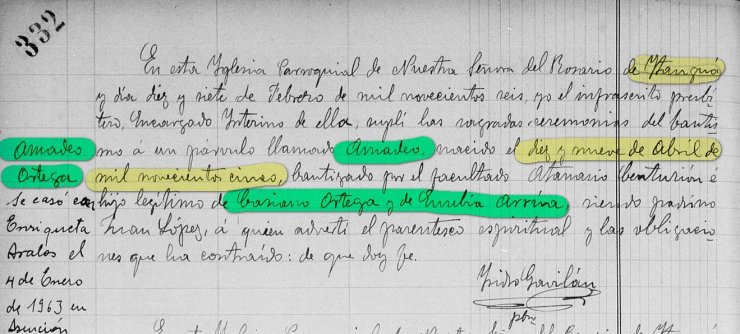 332
En esta Yglesia Parroquial de Nuestra Señora del Rosario de Ytauguá
y día diez y siete de Febrero de mil novecientos seis, yo el infrascrito presbí
tero, Encargado Interino de ella, suplí las sagradas ceremonias del bautis
mo á un párvulo llamado Amadeo, nacido el diez y nueve de Abril de
mil novecientos cinco, bautizado por el facultado Atanacio Centurion é
hijo legítimo de Casiano Ortega y de Enubia Arrúa, siendo padrino
Juan López, á quien advertí el parentesco espiritual y las obligacio
nes que ha contraído: de que doy fe.
Ysidro Gavilán
pbro
Amadeo
Ortega
Se casó con
Enriqueta
Avalos el
4 de Enero
de 1963 en
Asunción